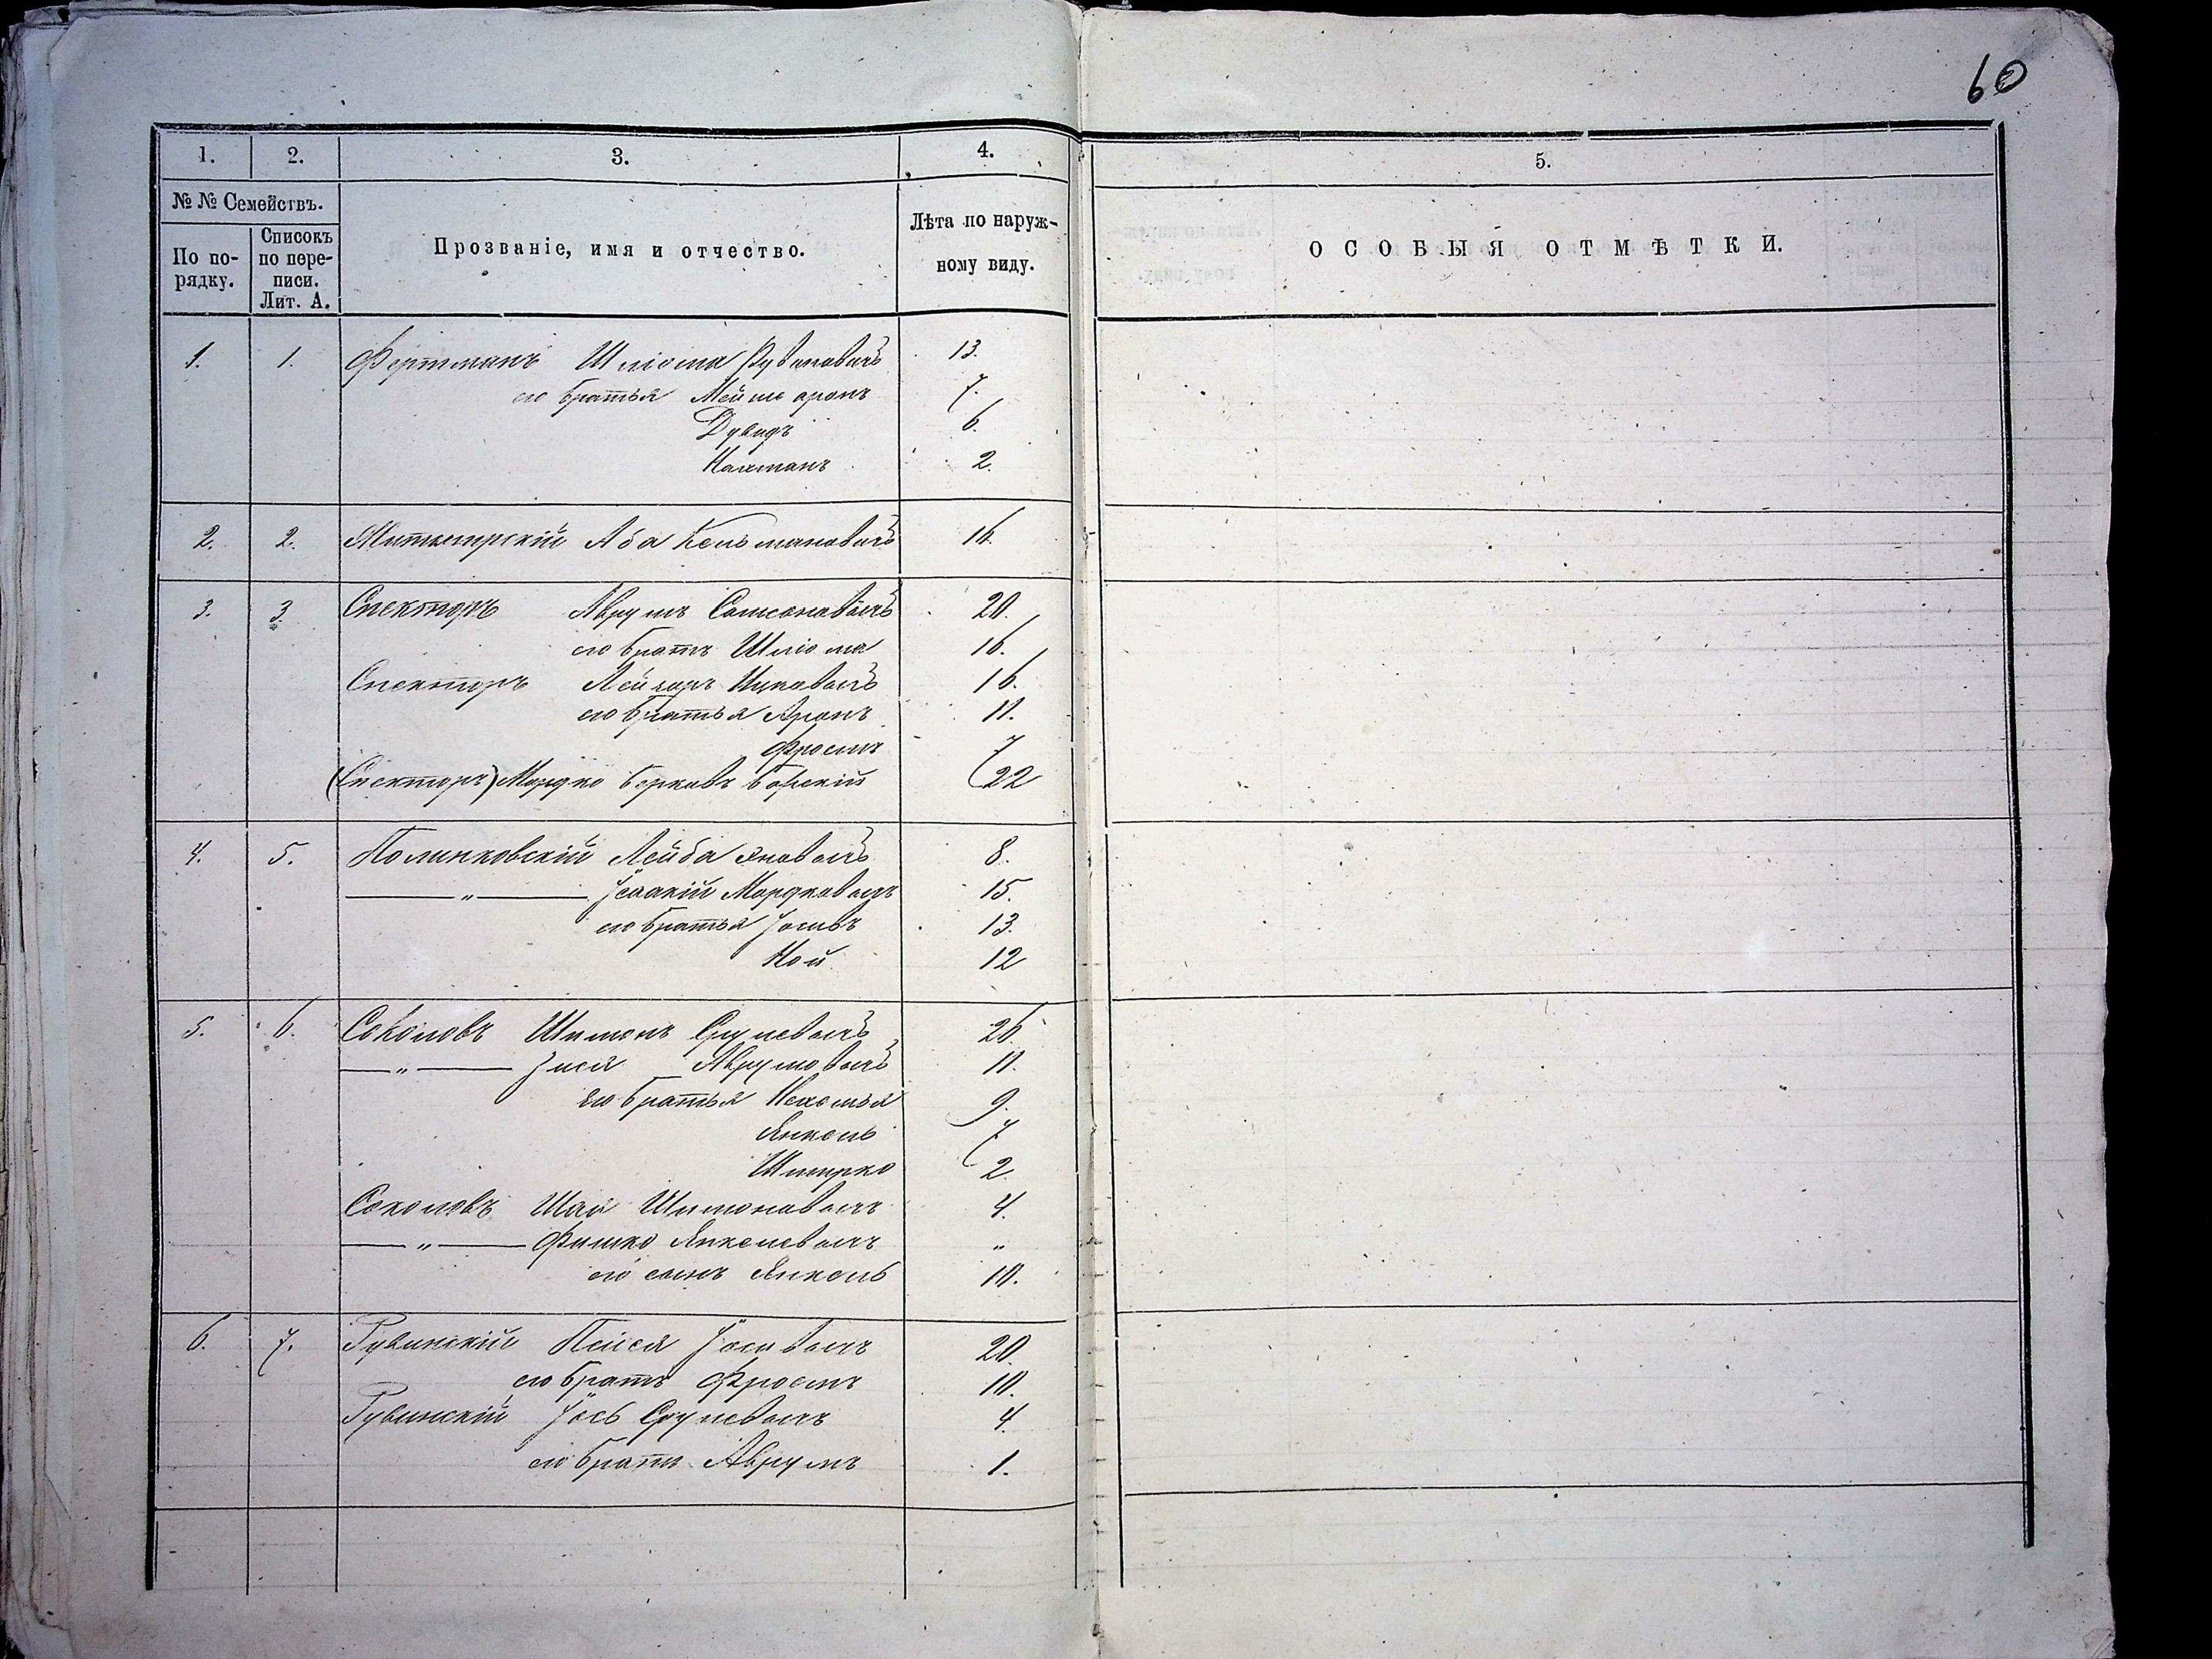 60
1. 2. 3. 4. 5.
№ № Семействъ.
По по-
рядку.
Списокъ
по пере-
писи.
Лит. А.
Прозваніе, имя и отчество.
Лѣта по наруж-
ному виду.
ОСОБЫЯ ОТМѢТКИ.
1. 1. Фертманъ Шліома Рувиновичъ 13.
его братья Мейше аронъ 7.
Дувидъ 6.
Нахманъ 2.
2. 2. Аба Кельмановичъ 16.
3. 3. Спекторъ Аврумъ Самсоновичъ 20.
его братъ Шліома 16.
Спекторъ Лейзоръ Ицковичъ 16.
его братья Аронъ 11.
Фроимъ 7
(Спекторъ) Мордко Берковъ 22
4. 5. Полинковскій Лейба Янковичъ 8.
—„— Ісаакій Мордковичъ 15.
его братья Іосифъ 13.
Ной 12
5. 6. Соколовъ Шимонъ Срулевичъ 26.
—„— Зися Аврумовичъ 11.
Его братья Нехемья 9.
Янкель 7
Шмерко 2.
Соколовъ Шая Шимоновичъ 4.
—„— Фишко Янкелевичъ „
его сынъ Янкель 10.
6. 7. Рувинскій Пейся Іосиовичъ 20.
его братъ Фроимъ 10.
Рувинскій Іось Срулевичъ 4.
его братъ Аврумъ 1.